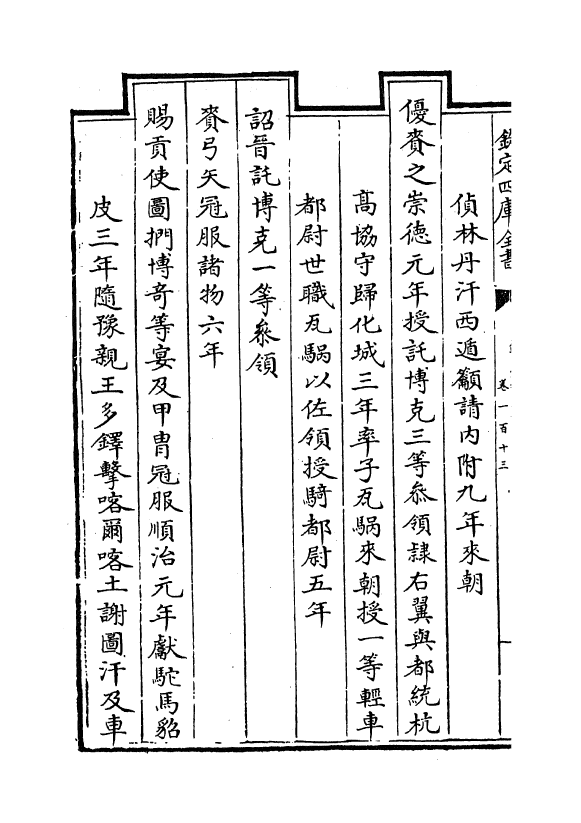 欽定四庫全書
卷一百十三
偵林丹汗西遁籲請內附九年來朝
優賚之崇德元年授託博克三等叅領隸右翼與都統杭
高協守歸化城三年率子瓦騧來朝授一等輕車
都尉世職瓦騧以佐領授騎都尉五年
詔晉託博克一等叅領
賚弓矢冠服諸物六年
賜貢使圖捫博竒等宴及甲冑冠服順治元年獻駝馬貂
皮三年隨豫親王多鐸擊喀爾喀土謝圖汗及車